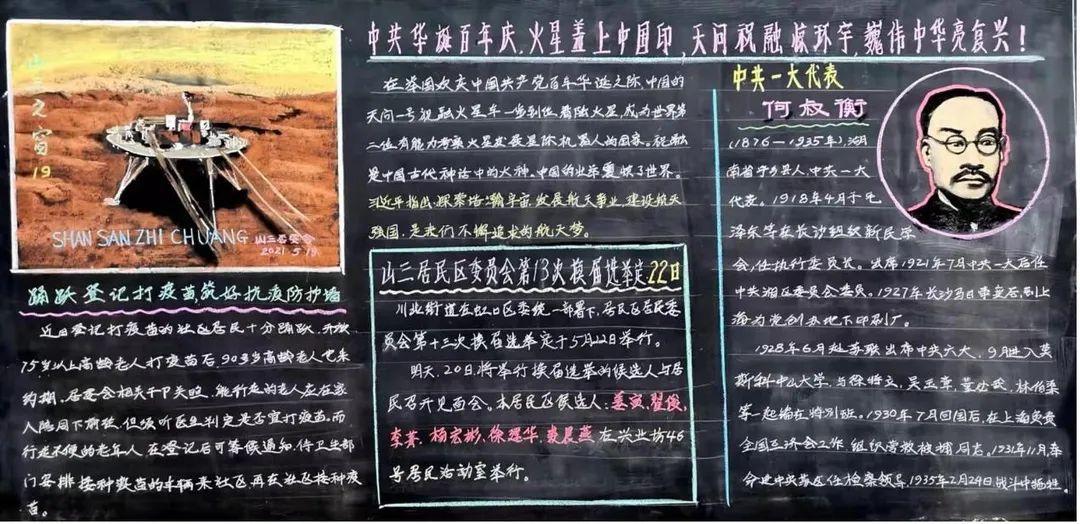 中共华诞百年庆,火星盖上中国印,天问祝融惊环宇,巍伟中华亮复兴!
山三之窗19
SHAN SAN ZHI CHUANG 山三居委会
2021 5 19
踊跃登记打疫苗筑好抗疫防护墙
近日登记打疫苗的社区居民十分踊跃,开放
75岁以上高龄老人打疫苗后,90多岁高龄老人也来
约期,居委会相关干P关照,能行走的老人应在家
人陪同下前往,但须听医生判定是否宜打疫苗,而
行走不便的老年人在登记后可等候通知,待卫生部
门安排接种疫苗的车辆来社区再在社区接种疫
苗。
在举国欢庆中国共产党百年华诞之际,中国的
天问一号祝融火星车一步到位着陆火星,成为世界第
二位有能力考察火星发展星际机器人的国家。祝融
是中国古代神话中的火神。中国的壮举震惊了世界。
习近平指出:探索浩瀚宇宙,发展航天事业,建设航天
强国,是我们不懈追求的航天梦。
山三居民区委员会第13次换届选举定22日
川北街道在虹口区委统一部署下,居民区居民委
员会第十三次换届选举定于5月22日举行。
明天,20日,将举行换届选举的候选人与居
民召开见面会。本居民区候选人:姜寅,翟俊,
李萍,杨宏彬,徐理华,龚晨燕在兴业坊46
号居民活动室举行。
中共一大代表
何叔衡
(1876—1935年),湖
南省宁乡县人,中共一大
代表。1918年4月于毛
泽东等在长沙组织新民学
会,任执行委员长。出席1921年7月中共一大后任
中共湘区委员会委员。1927年长沙马日事变后,到上
海为党创办地下印刷厂。
1928年6月赴苏联出席中共六大,9月进入莫
斯科中山大学,与徐特立,吴玉章,董必武,林伯渠
等一起编在特别班。1930年7月回国后,在上海负责
全国互济会工作组织营救被捕同志。1931年11月,奉
命进中央苏区任检察领导,1935年2月24日战斗中牺牲。